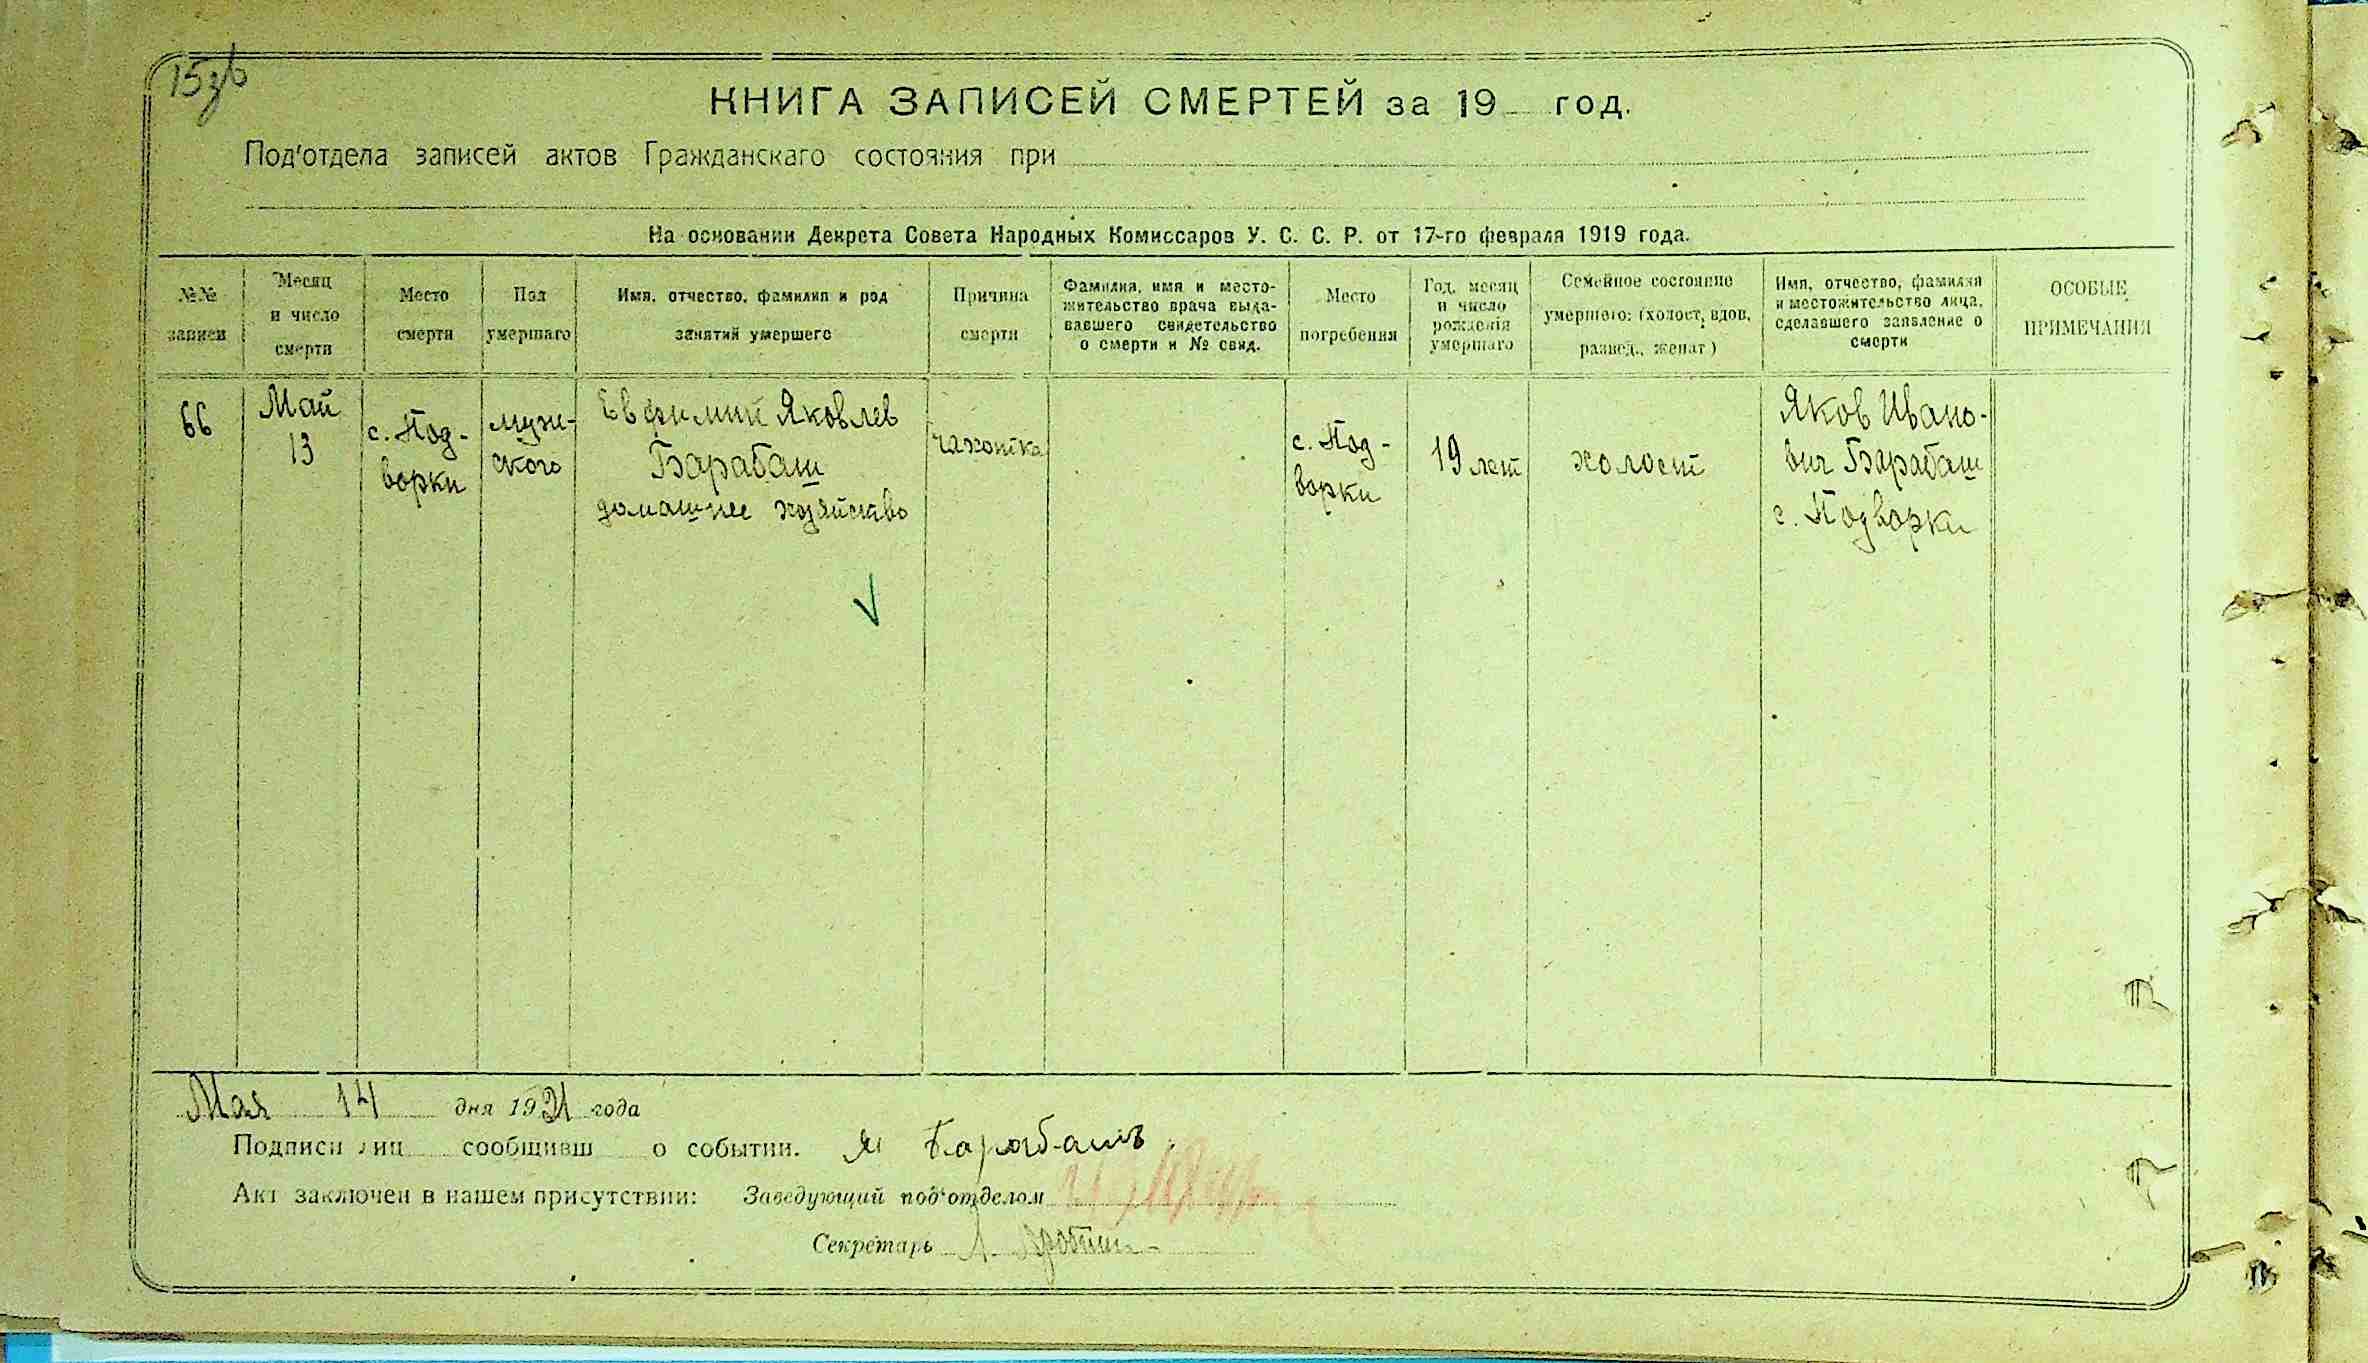 15зв
КНИГА ЗАПИСЕЙ СМЕРТЕЙ за 19 год.
Под'отдела записей актов Гражданскаго состояния при
На основании Декрета Совета Народных Комиссаров У. С. С. Р. от 17-го февраля 1919 года.
№№ записи
Месяц и число смерти
Место смерти
Пол умершаго
Имя, отчество, фамилия и род занятий умершего
Причина смерти
Фамилия, имя и место-
жительство врача выда-
вавшего свидетельство
о смерти и № свид.
Место погребения
Год, месяц и число рождения умершаго
Семейное состояние умершего: (холост, вдов, развед., женат)
Имя, отчество, фамилия
и местожительство лица,
сделавшего заявление о
смерти
ОСОБЫЕ ПРИМЕЧАНИЯ
66
Май
13
с. Под-
ворки
мужи-
ского
Евфимий Яковлев
Барабаш
домашнее хозяйство
чахотка
с. Под-
ворки
19 лет
холост
Яков Ивано-
вич Барабаш
с. Подворки
Мая 14 дня 1921 года
Подписи лиц сообщивш о событии. Я Барабашъ
Акт заключен в нашем присутствии: Заведующий под'отделом
Секретарь